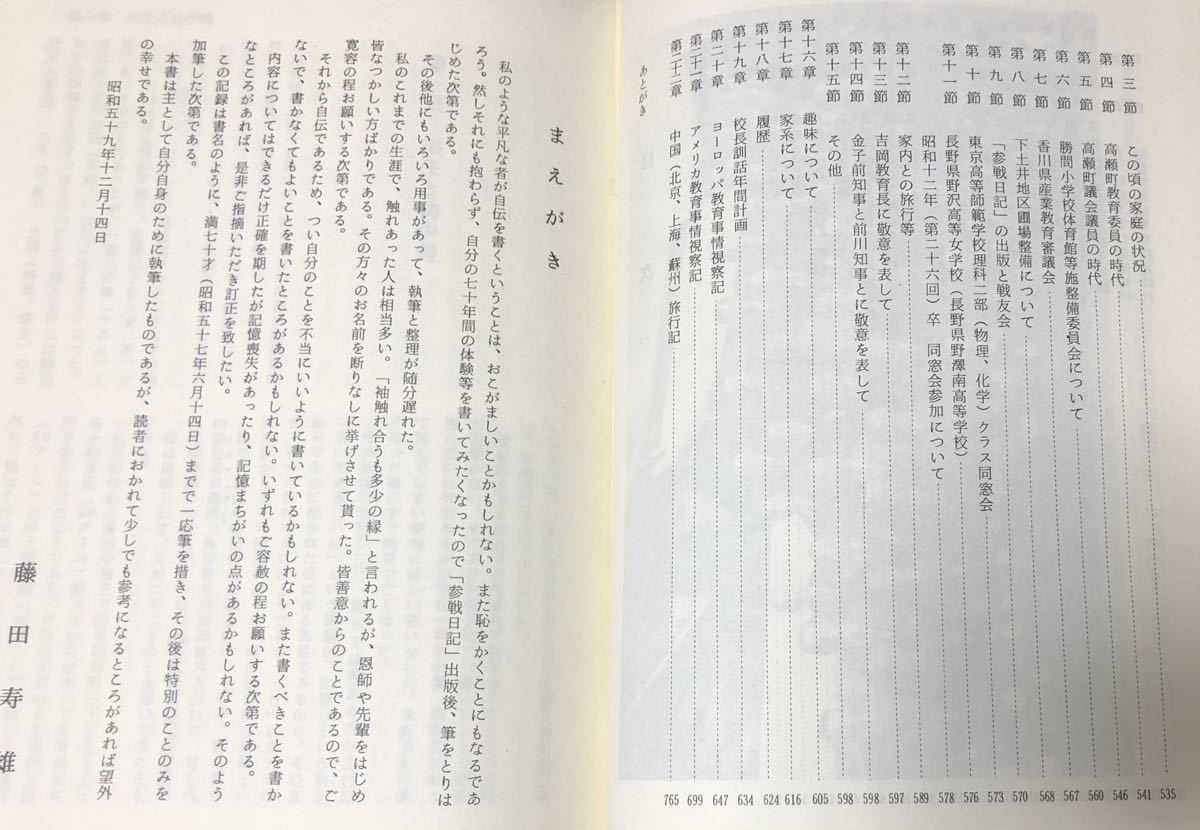 第三節 この頃の家庭の状況 535
第四節 高瀬町教育委員の時代 541
第五節 高瀬町議会議員の時代 546
第六節 勝間小学校体育館等施整備委員会について 560
第七節 香川県産業教育審議会 567
第八節 下土井地区圃場整備について 568
第九節 「参戦日記」の出版と戦友会 570
第十節 東京高等師範学校理科二部（物理、化学）クラス同窓会 573
第十一節 長野県野沢高等女学校（長野県野澤南高等学校） 576
昭和十二年（第二十六回）卒 同窓会参加について 578
第十二節 家内との旅行等 589
第十三節 吉岡教育長に敬意を表して 597
第十四節 金子前知事と前川知事とに敬意を表して 598
第十五節 その他 598
第十六章 趣味について 605
第十七章 家系について 616
第十八章 履歴 624
第十九章 校長訓話年間計画 634
第二十章 ヨーロッパ教育事情視察記 647
第二十一章 アメリカ教育事情視察記 699
第二十二章 中国（北京、上海、蘇州）旅行記 765
あとがき
まえがき
私のような平凡な者が自伝を書くということは、おこがましいことかもしれない。また恥をかくことにもなるであ
ろう。然しそれにも拘わらず、自分の七十年間の体験等を書いてみたくなったので「参戦日記」出版後、筆をとりは
じめた次第である。
その後他にもいろいろ用事があって、執筆と整理が随分遅れた。
私のこれまでの生涯で、触れあった人は相当多い。「袖触れ合うも多少の縁」と言われるが、恩師や先輩をはじめ
皆なつかしい方ばかりである。その方々のお名前を断りなしに挙げさせて貰った。皆善意からのことであるので、ご
寛容の程お願いする次第である。
それから自伝であるため、つい自分のことを不当にいいように書いているかもしれない。また書くべきことを書か
ないで、書かなくてもよいことを書いたところがあるかもしれない。いずれもご容赦の程お願いする次第である。
内容についてはできるだけ正確を期したが記憶喪失があったり、記憶まちがいの点があるかもしれない。そのよう
なところがあれば、是非ご指摘いただき訂正を致したい。
この記録は書名のように、満七十才（昭和五十七年六月十四日）までで一応筆を措き、その後は特別のことのみを
加筆した次第である。
本書は主として自分自身のために執筆したものであるが、読者におかれて少しでも参考になるところがあれば望外
の幸せである。
昭和五十九年十二月十四日
藤田寿雄